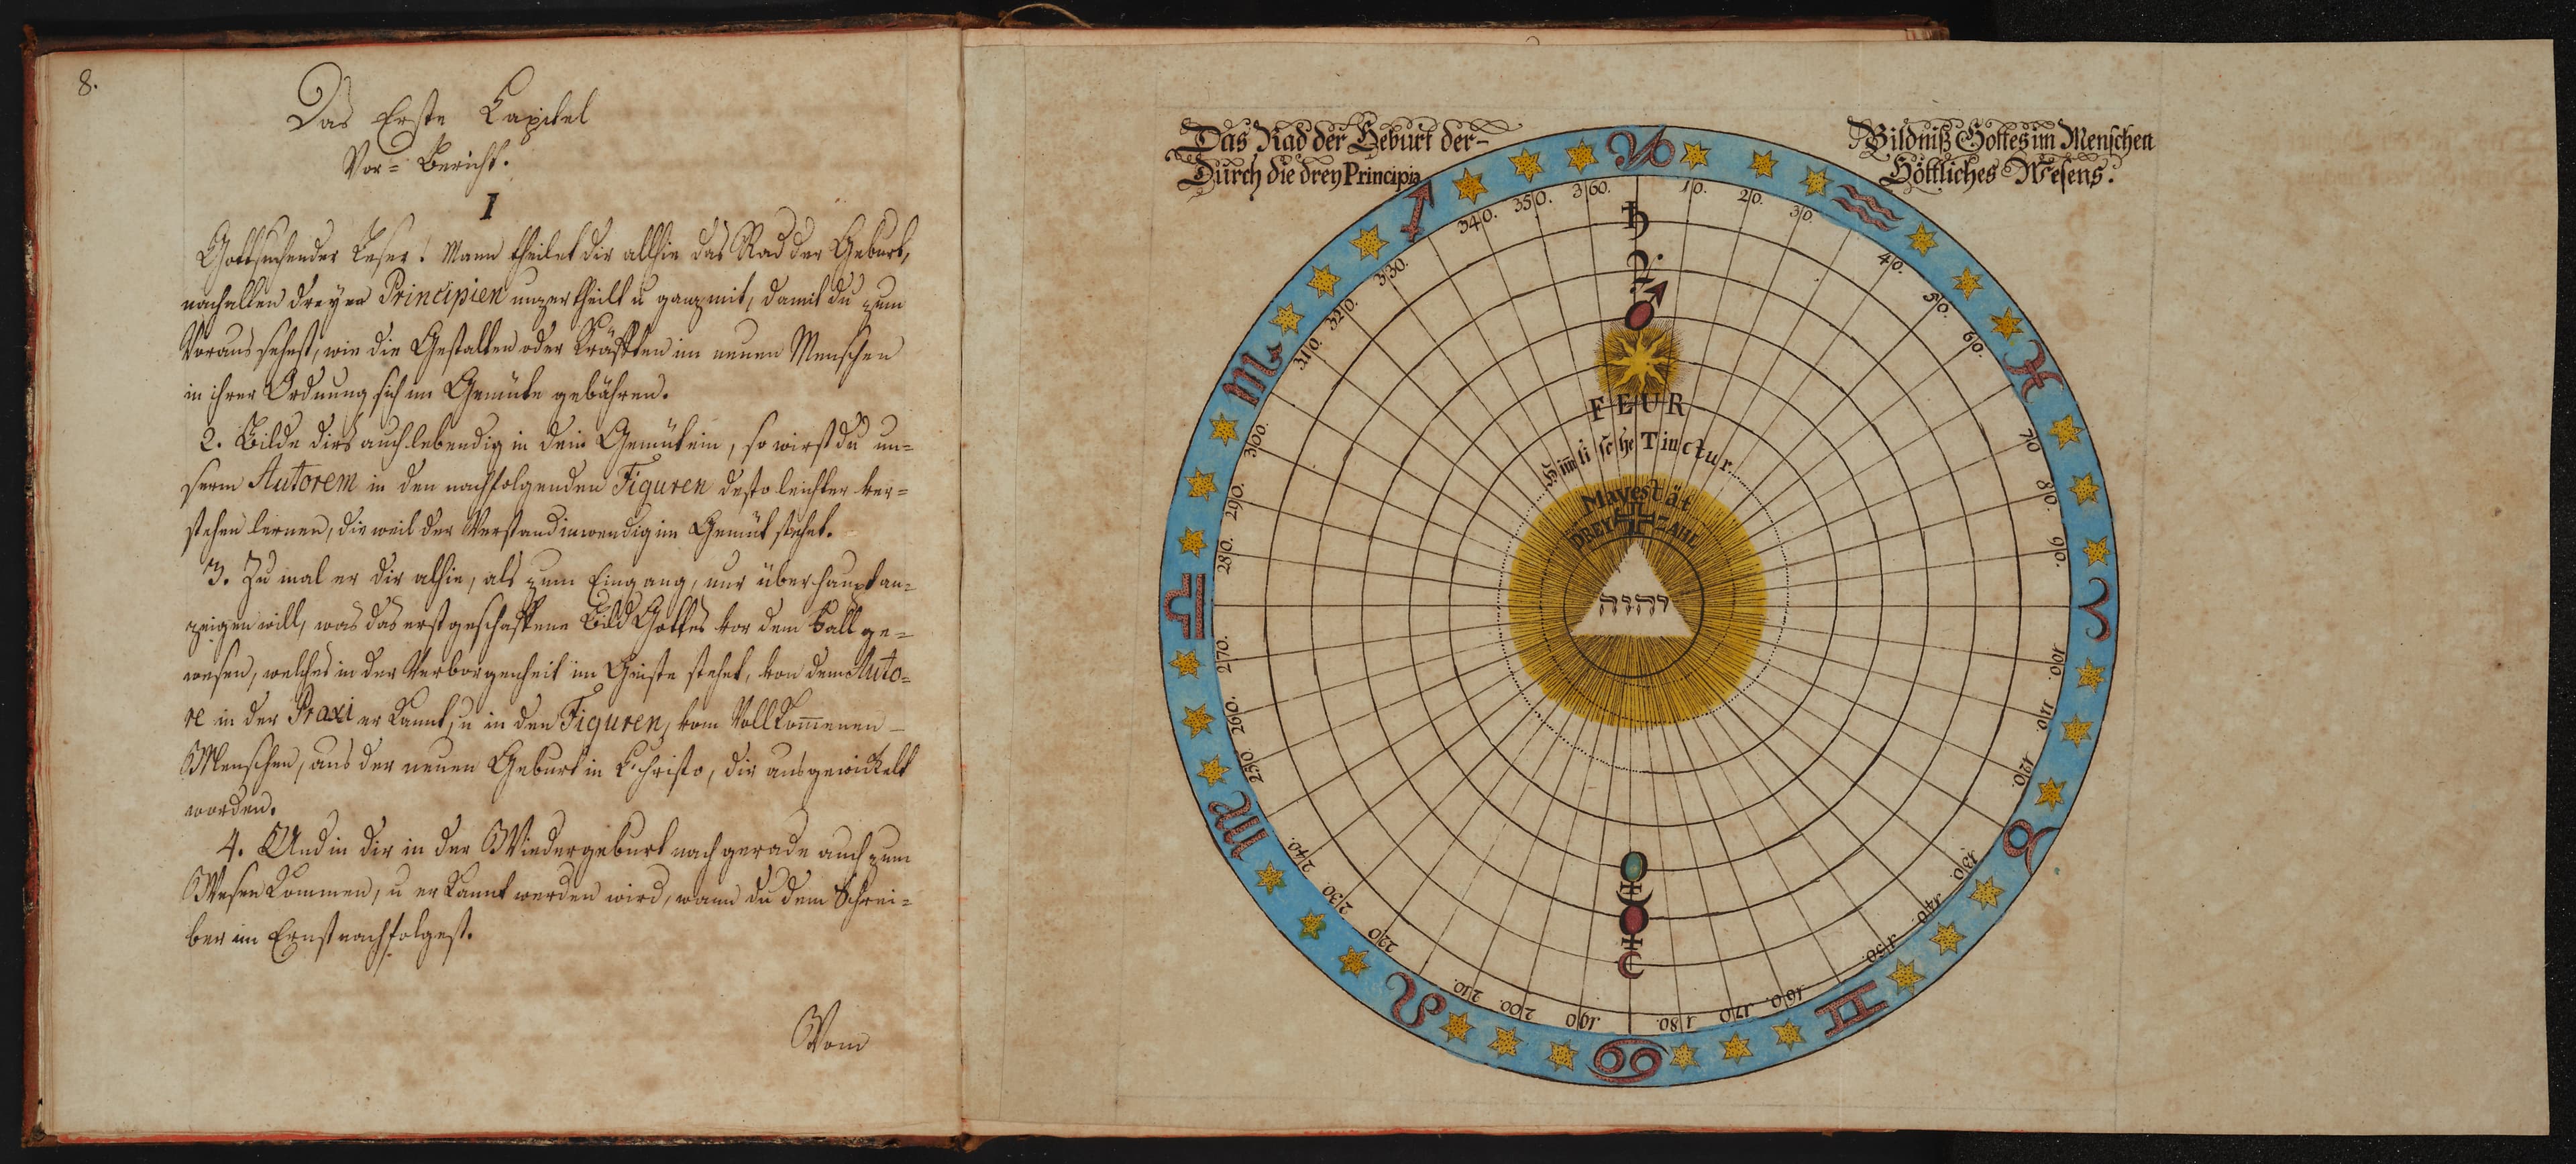 8.
Das Erste Capitel
Vor= Bericht.
I
Gottsuchender Leser! Mann theilet dir allhie das Rad der Geburt,
nach allen dreyen Principien unzertheilt u ganz mit, damit du zum
Voraus sehest, wie die Gestalten oder Kräfften im neuen Menschen
in ihrer Ordnung sich im Gemüte gebähren.
2. Bilde dirs auch lebendig in dein Gemüt ein, so wirst du un=
serm Autorem in den nachfolgenden Figuren desto leichter ver=
stehen lernen, die weil der Verstand inwendig im Gemüt stehet.
3. Zu mal er dir alhie, als zum Eingang, nur überhaupt an=
zeigen will, was das erst geschaffene Bild Gottes vor dem Fall ge=
wesen, welches in der Verborgenheit im Geiste stehet, von dem Auto=
re in der Praxi er kannt, u in den Figuren, vom Vollkom̅enen
Menschen, aus der neuen Geburt in Christo, dir ausgewickelt
worden.
4. Und in dir in der Wiedergeburt nach gerade auch zum
Wesen kommen, u er kannt werden wird, wann du dem Schrei=
ber im Ernst nachfolgest.
Vom
Das Rad der Geburt der=
Durch die drey Principia
Bildniß Gottes im Menschen
Göttliches Wesens.
♑
♒
♓
♈
♉
♊
♋
♌
♍
♎
♏
♐
10.
20.
30.
40.
50.
60.
70
80.
90.
100.
110.
120.
130.
140.
150.
160.
170
180.
190
200.
210.
220
230.
240.
250
260.
270.
280.
290.
300.
310.
320.
330.
340.
350.
360.
♄
♃
♂
FEUR
Him̅lische Tinctur.
Mayestät
DREY ZAHL
יהוה
♀
☿
☾